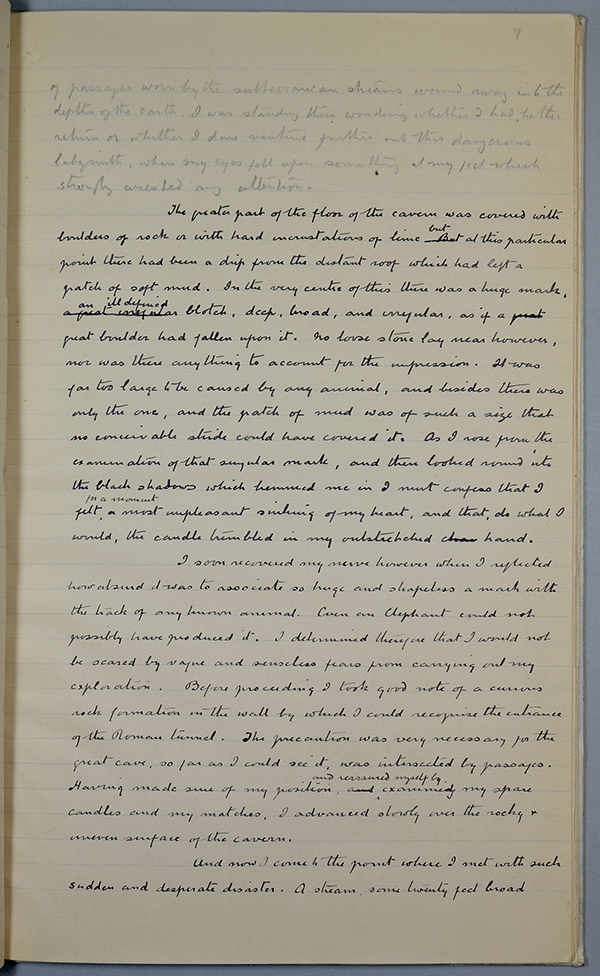 7
of passages worn by the subterranean streams wound away into the
depths of the earth. I was standing there wondering whether I had better
return or whether I dare venture further into this dangerous
labyrinth, when my eyes fell upon something at my feet which
strongly arrested my attention.
The greater part of the floor of the cavern was covered with
boulders of rock or with hard incrustations of lime but But at this particular
point there had been a drip from the distant roof which had left a
patch of soft mud. In the very centre of this there was a huge mark,
an ill defined
a great irregular blotch, deep, broad, and irregular, as if a great
great boulder had fallen upon it. No loose stone lay near however,
nor was there anything to account for the impression. It was
far too large to be caused by any animal, and besides there was
only the one, and the patch of mud was of such a size that
no conceivable stride could have covered it. As I rose from the
examination of that singular mark, and then looked round into
the black shadows which hemmed me in I must confess that I
for a moment
felt a most unpleasant sinking of my heart, and that, do what I
would, the candle trembled in my outstretched hand.
I soon recovered my nerve however when I reflected
how absurd it was to associate so huge and shapeless a mark with
the track of any known animal. Even an Elephant could not
possibly have produced it. I determined therefore that I would not
be scared by vague and senseless fears from carrying out my
exploration. Before proceeding I took good note of a curious
rock formation in the wall by which I could recognise the entrance
of the Roman tunnel. The precaution was very necessary for the
great cave, so far as I could see it, was intersected by passages.
and reassured myself by
Having made sure of my position, and examining my spare
candles and my matches, I advanced slowly over the rocky &
uneven surface of the cavern.
And now I come to the point where I met with such
sudden and desperate disaster. A stream, some twenty feet broad